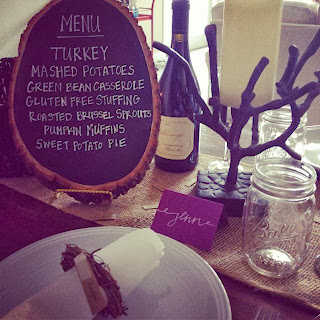 MENU
TURKEY
MASHED POTATOES
GREEN BEAN CASSEROLE
GLUTEN FREE STUFFING
ROASTED BRUSSEL SPROUTS
PUMPKIN MUFFINS
SWEET POTATO PIE
jenn